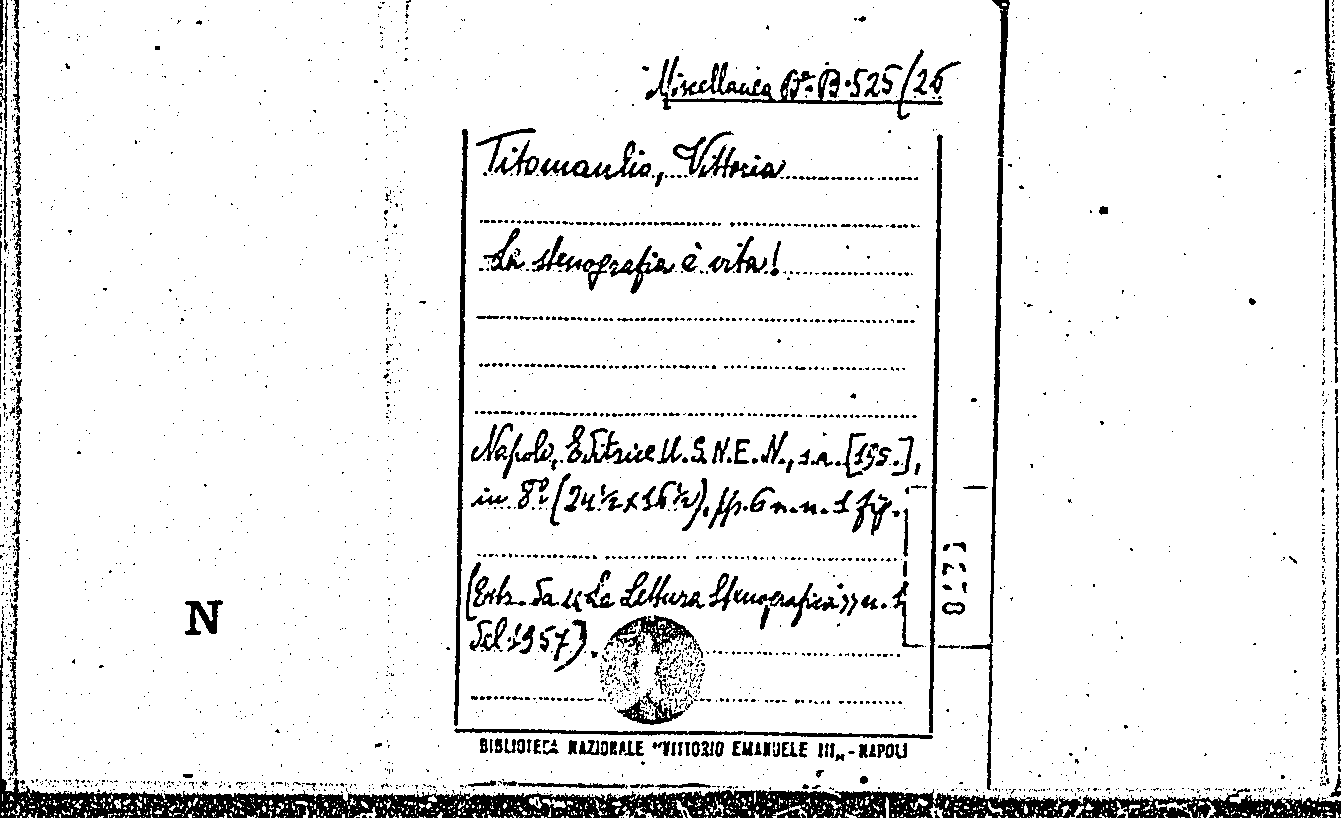 Miscellanea Bª. B. 525/26
Titomanlio, Vittoria
La stenografia è vita!
Napoli, Editrice U.S.N.E.N., s.a. [195.],
in 8º (24½x16½), pp. 6 n.n. 1 fig.
(Estr. da «La Lettura Stenografica» n. 1
del 1957).
N
BIBLIOTECA NAZIONALE "VITTORIO EMANUELE III„ - NAPOLI